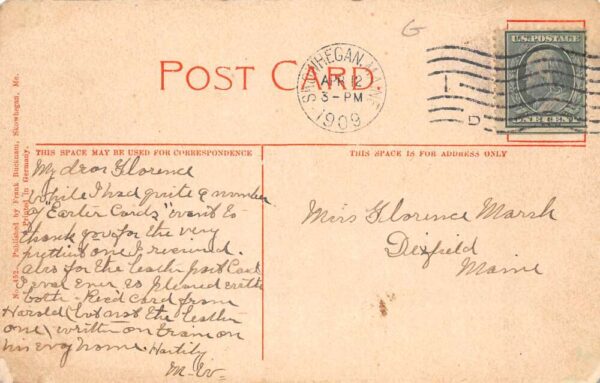 G
U.S. POSTAGE
ONE CENT
SKOWHEGAN, MAINE
APR 12
3-PM
1909
D
POST CARD
THIS SPACE MAY BE USED FOR CORRESPONDENCE
THIS SPACE IS FOR ADDRESS ONLY
No. 452. Published by Frank Bucknam, Skowhegan, Me.
Printed in Germany.
My dear Florence
While I had quite a number
of Easter Cards, want to
thank you for the very
pretty one I received.
Also for the leather post Card
I was ever so pleased with
both - Rec'd card from
Harold (but not the leather
one) written on train on
his way home. Hastily
M. W-
Miss Florence Marsh
Dixfield
Maine